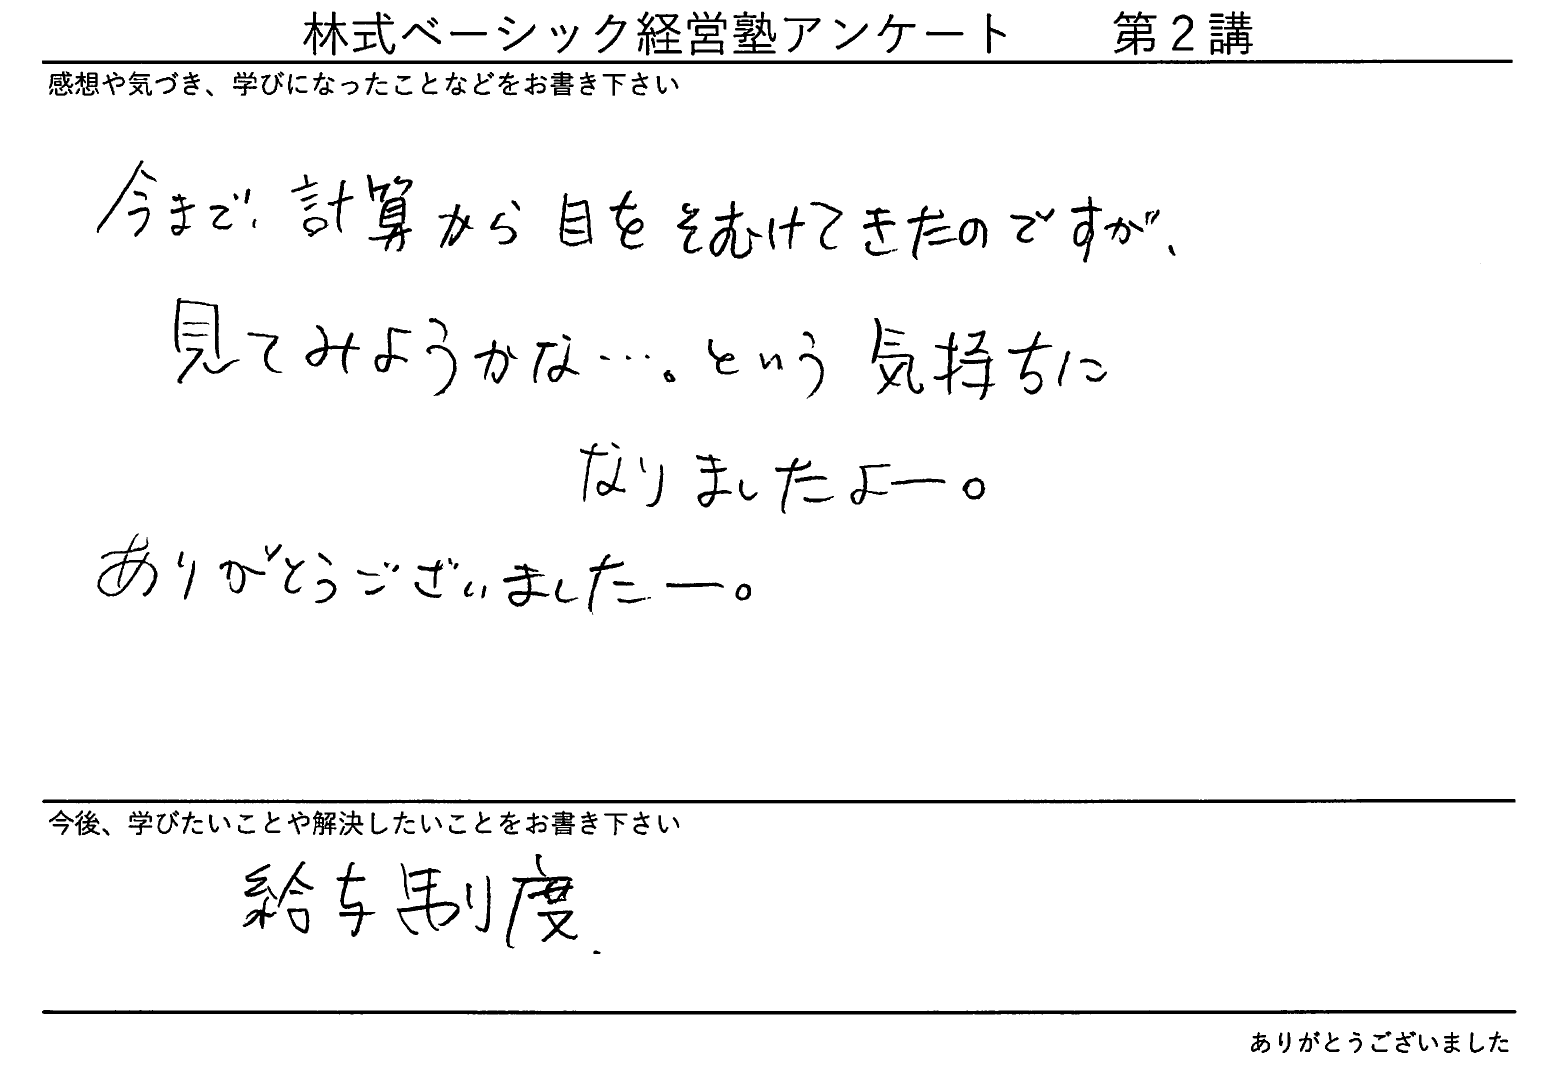 林式ベーシック経営塾アンケート　　第２講
感想や気づき、学びになったことなどをお書き下さい
今まで、計算から目をそむけてきたのですが、
見てみようかな…。という気持ちに
なりましたよー。
ありがとうございましたー。
今後、学びたいことや解決したいことをお書き下さい
給与制度.
ありがとうございました